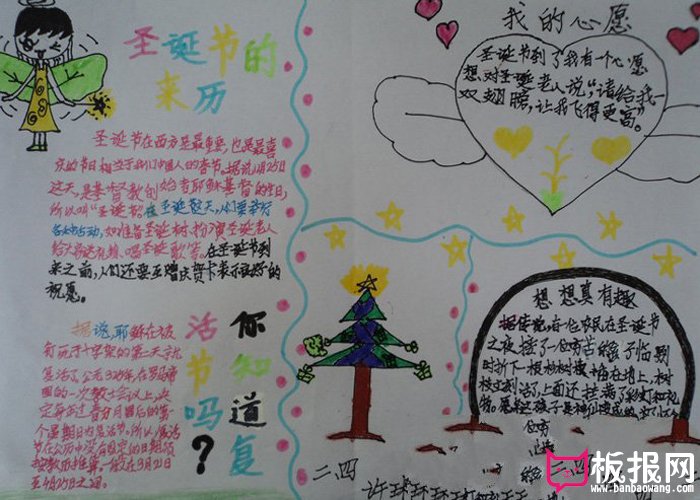 圣诞节的
来历
圣诞节在西方是最重要,也是最喜
庆的节日相当于我们中国人的春节。据说,12月25日
这天,是基督教创始者耶稣基督的生日,
所以叫“圣诞节”在圣诞这天,人们要举行
各种活动,如准备圣诞树扮演圣诞老人
给大家送礼物、唱圣诞歌等,在圣诞节到
来之前,人们还要互赠庆贺卡表示良好的
祝愿。
你知道复
活节吗?
据说,耶稣在被
钉死于十字架的第三天就
复活了,公元325年,在罗马帝
国的一次教士会议上,决
定每年过春分月圆后的第一
个星期日为复活节。所以,复活
节在公历中没有固定的日期须
按教历推算,一般在3月21日
至4月25日之间。
我的心愿
圣诞节到了我有一个心愿
想对圣诞老人说:“请给我一
双翅膀,让我飞得更高”。
想想真有趣
据传说,有一位农民在圣诞节
之夜,接了一位有苦
时折下一根杉树枝插在地上,树
枝立刻活了,上面还挂满了彩灯和礼
二四
二四
许
板报网
www.banbaowang.com